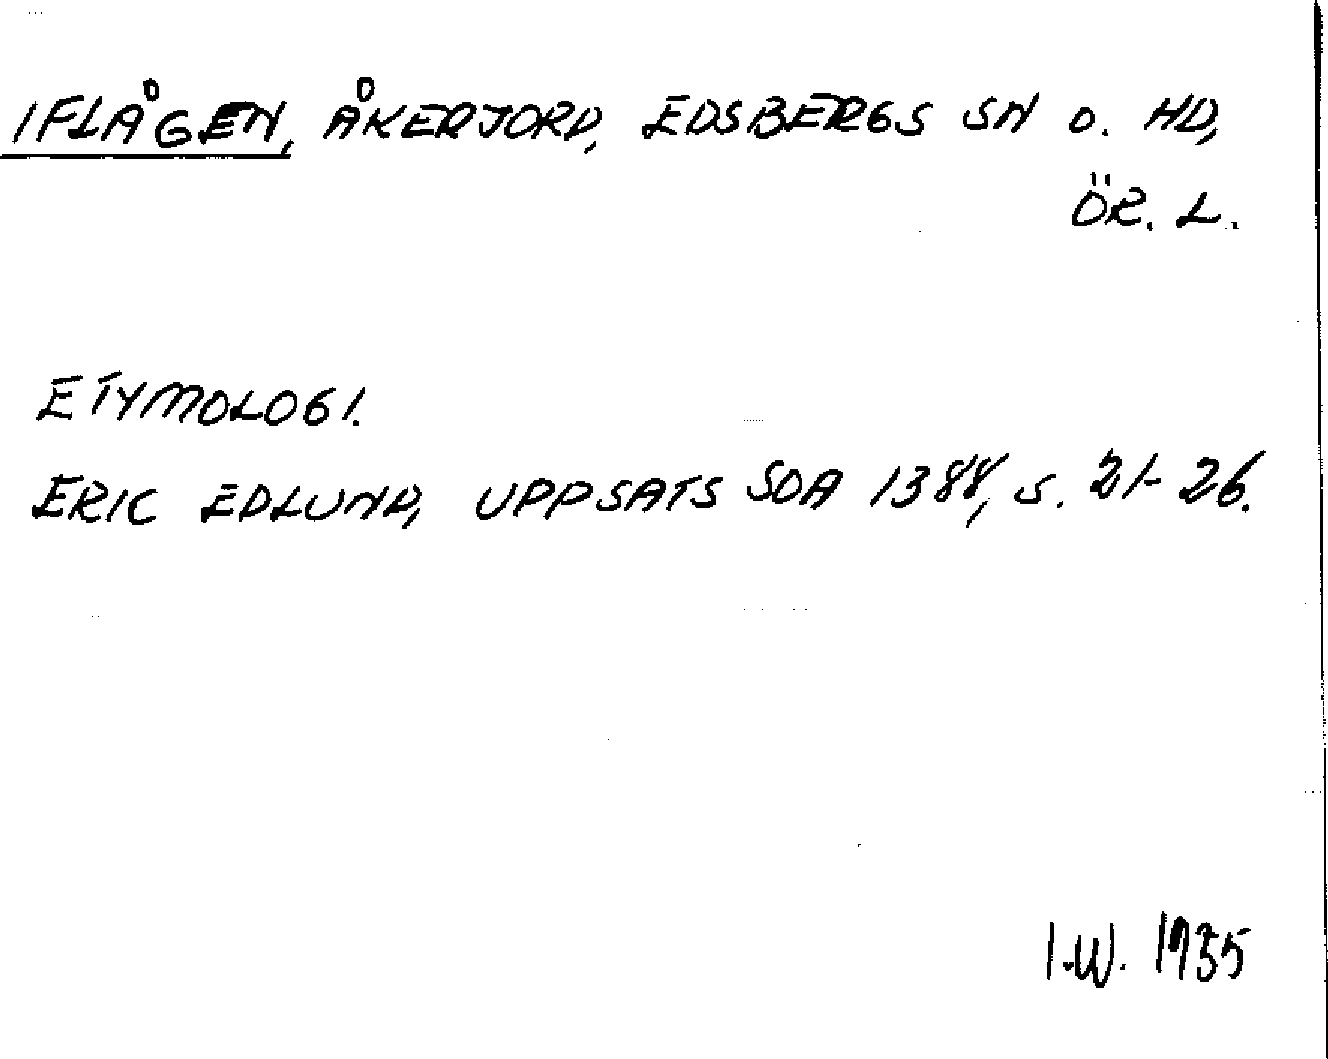 IFLÅGEN, ÅKERJORD, EDSBERGS SN O. HD,
ÖR. L.
ETYMOLOGI.
ERIC EDLUND, UPPSATS SOA 1388, s. 21-26.
I.W. 1935